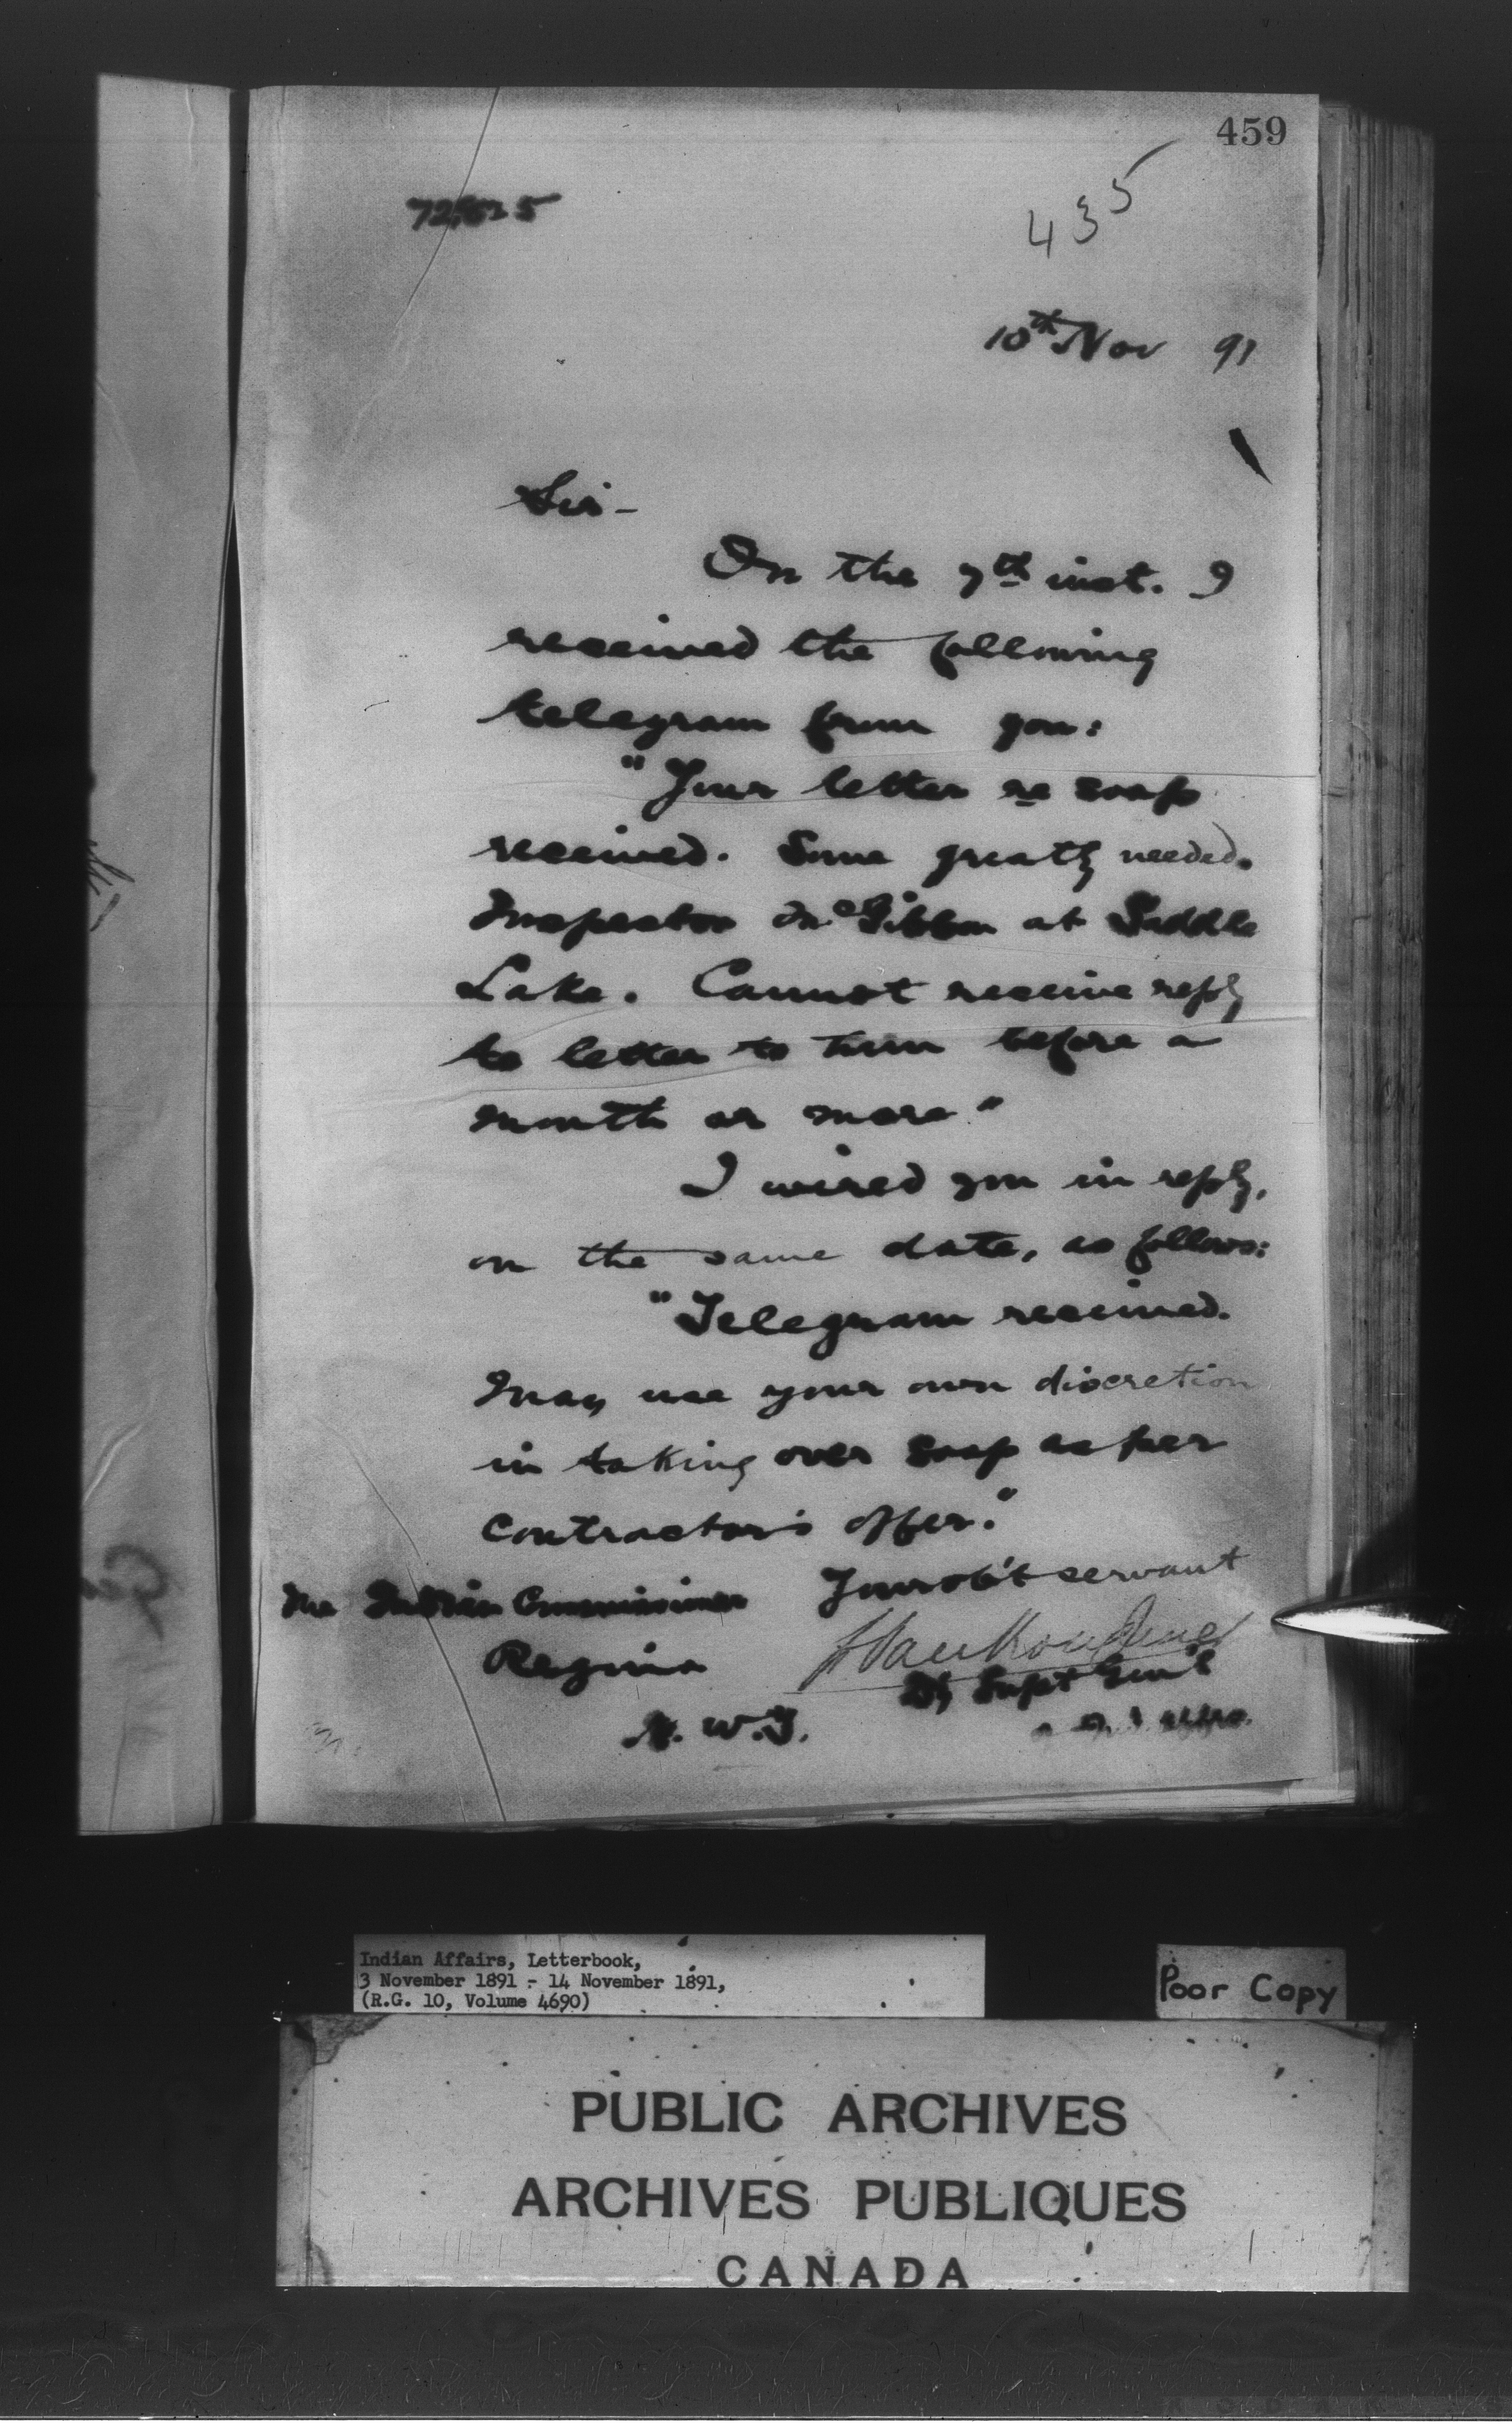 459
435
10th Nov 91
Sir-
On the 7th inst. I
received the following
telegram from you:
"Your letter re soap
received. Some greatly needed.
Inspector McGibbon at Saddle
Lake. Cannot receive reply
to letter to him before a
month or more"
I wired you in reply,
on the same date, as follows:
"Telegram received.
May use your own discretion
in taking over soap as per
contractor's offer."
Your ob't servant
The Indian Commissioner
L Vankoughnet
Regina
Dy Supt Gen'l
N.W.T.
Indian Affairs, Letterbook,
3 November 1891 - 14 November 1891,
(R.G. 10, Volume 4690)
Poor Copy
PUBLIC ARCHIVES
ARCHIVES PUBLIQUES
CANADA